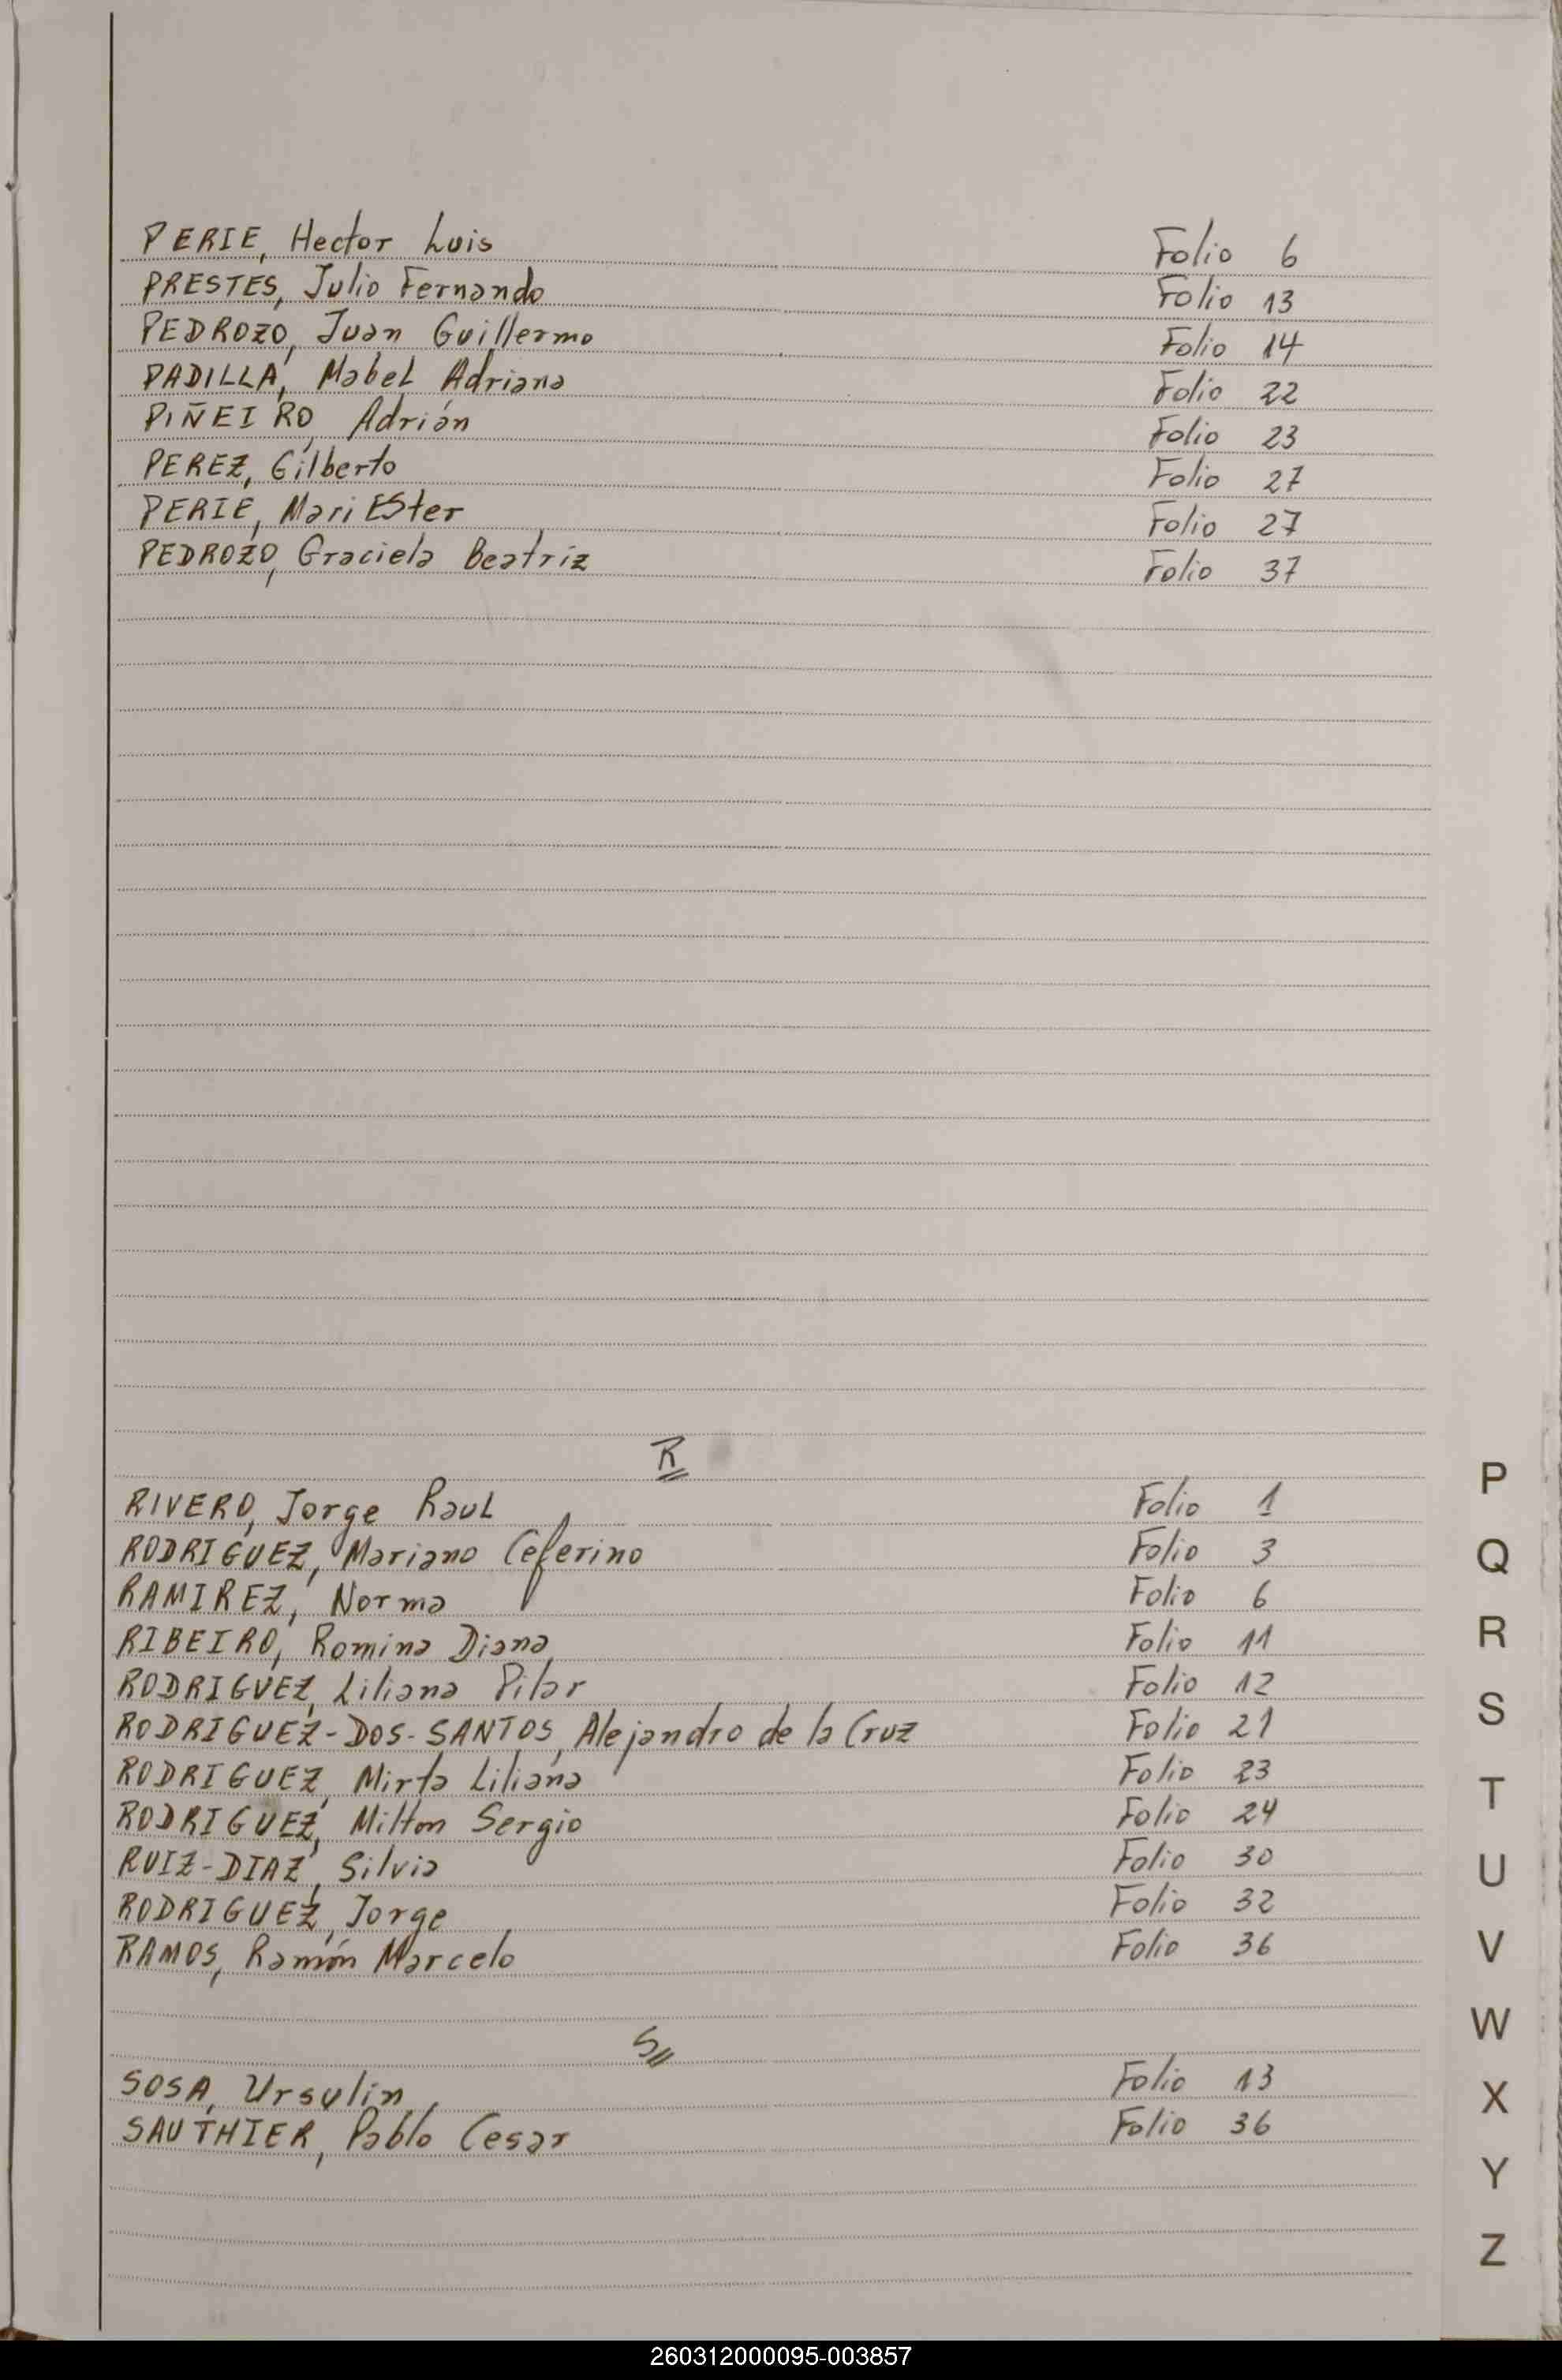 PERIE, Hector Luis Folio 6
PRESTES, Julio Fernando Folio 13
PEDROZO, Juan Guillermo Folio 14
PADILLA, Mabel Adriana Folio 22
PIÑEIRO Adrián Folio 23
PEREZ, Gilberto Folio 27
PERIE, Mari Ester Folio 27
PEDROZO, Graciela Beatriz Folio 37
R
RIVERO, Jorge Raul Folio 1
RODRIGUEZ, Mariano Ceferino Folio 3
RAMIREZ, Norma Folio 6
RIBEIRO, Romina Diana Folio 11
RODRIGUEZ, Liliana Pilar Folio 12
RODRIGUEZ-DOS-SANTOS, Alejandro de la Cruz Folio 21
RODRIGUEZ, Mirta Liliana Folio 23
RODRIGUEZ, Milton Sergio Folio 24
RUIZ-DIAZ, Silvia Folio 30
RODRIGUEZ, Jorge Folio 32
RAMOS, Ramón Marcelo Folio 36
S
SOSA, Ursulin Folio 13
SAUTHIER, Pablo Cesar Folio 36
P
Q
R
S
T
U
V
W
X
Y
Z
260312000095-003857